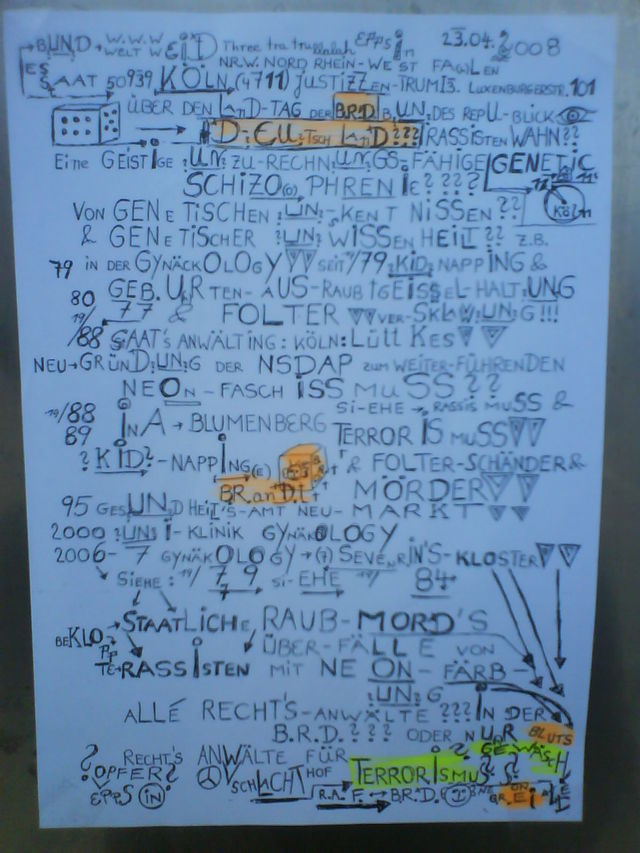 → B:UN:D → W.W.W WELT WEiD Three tra trullalah EPPS in 23.04.2008
N.R.W. NORD RHEIN-WEST FA(L)LEN
SAAT 50939 KÖLN (4711) JUSTIZZEN-TRUM LUXENBURGERSTR. 101
ÜBER DEN LanD-TAG DER B.R.D. B.UN.DES REPU-BLICK
D-EU-TSCH LanD??? RASSISTEN WAHN??
EiNE GEiSTiGE :UN: ZU-RECHN:UN:GS-FÄHiGE GENETiC
SCHIZO(O) PHRENiE????
VON GENETiSCHEN :UN:-KENTNiSSEN?? KÖLN
& GENETiSCHER :UN: WiSSENHEiT?? Z.B.
79 iN DER GYNÄCKOLOGY SEiT 19/79 :KiD: NAPPiNG &
80 GEB.URTEN-AUS-RAUB + GEiSSEL-HALT:UNG
19/ 77 & FOLTER VER-SKLAV:UN:G!!!
/88 SAAT'S ANWÄLTiNG: KÖLN: LüTTKES
NEU→GRÜND:UN:G DER NSDAP ZUM WEiTER-FÜHRENDEN
NEON-FASCHiSSMUSS??
19/88 Si-EHE → RASSiSMUSS &
89 iN A → BLUMENBERG TERRORiSMUSS
? KiD?-NAPPiNG(E) & FOLTER-SCHÄNDER &
BR.anD.t MÖRDER
95 GESUNDHEiT'S-AMT NEU-MARKT
2000 :UN:i-KLiNiK GYNÄKOLOGY
2006-7 GYNÄKOLOGY → (7) SEVERiN'S-KLOSTER
SiEHE: 19/79 Si-EHE 19/84
BEKLO → STAATLiCHE RAUB-MORD'S
PP ÜBER-FÄLLE VON
TE RASSiSTEN MiT NEON-FÄRB-
:UN:G
ALLE RECHT'S-ANWÄLTE??? iN DER
B.R.D.??? ODER NUR BLUTS
RECHT'S ANWÄLTE FÜR GE.WÄSCH
?OPFER? SCHLACHTHOF TERRORiSMUS??
EPPS iN R.A.F. → B.R.D.